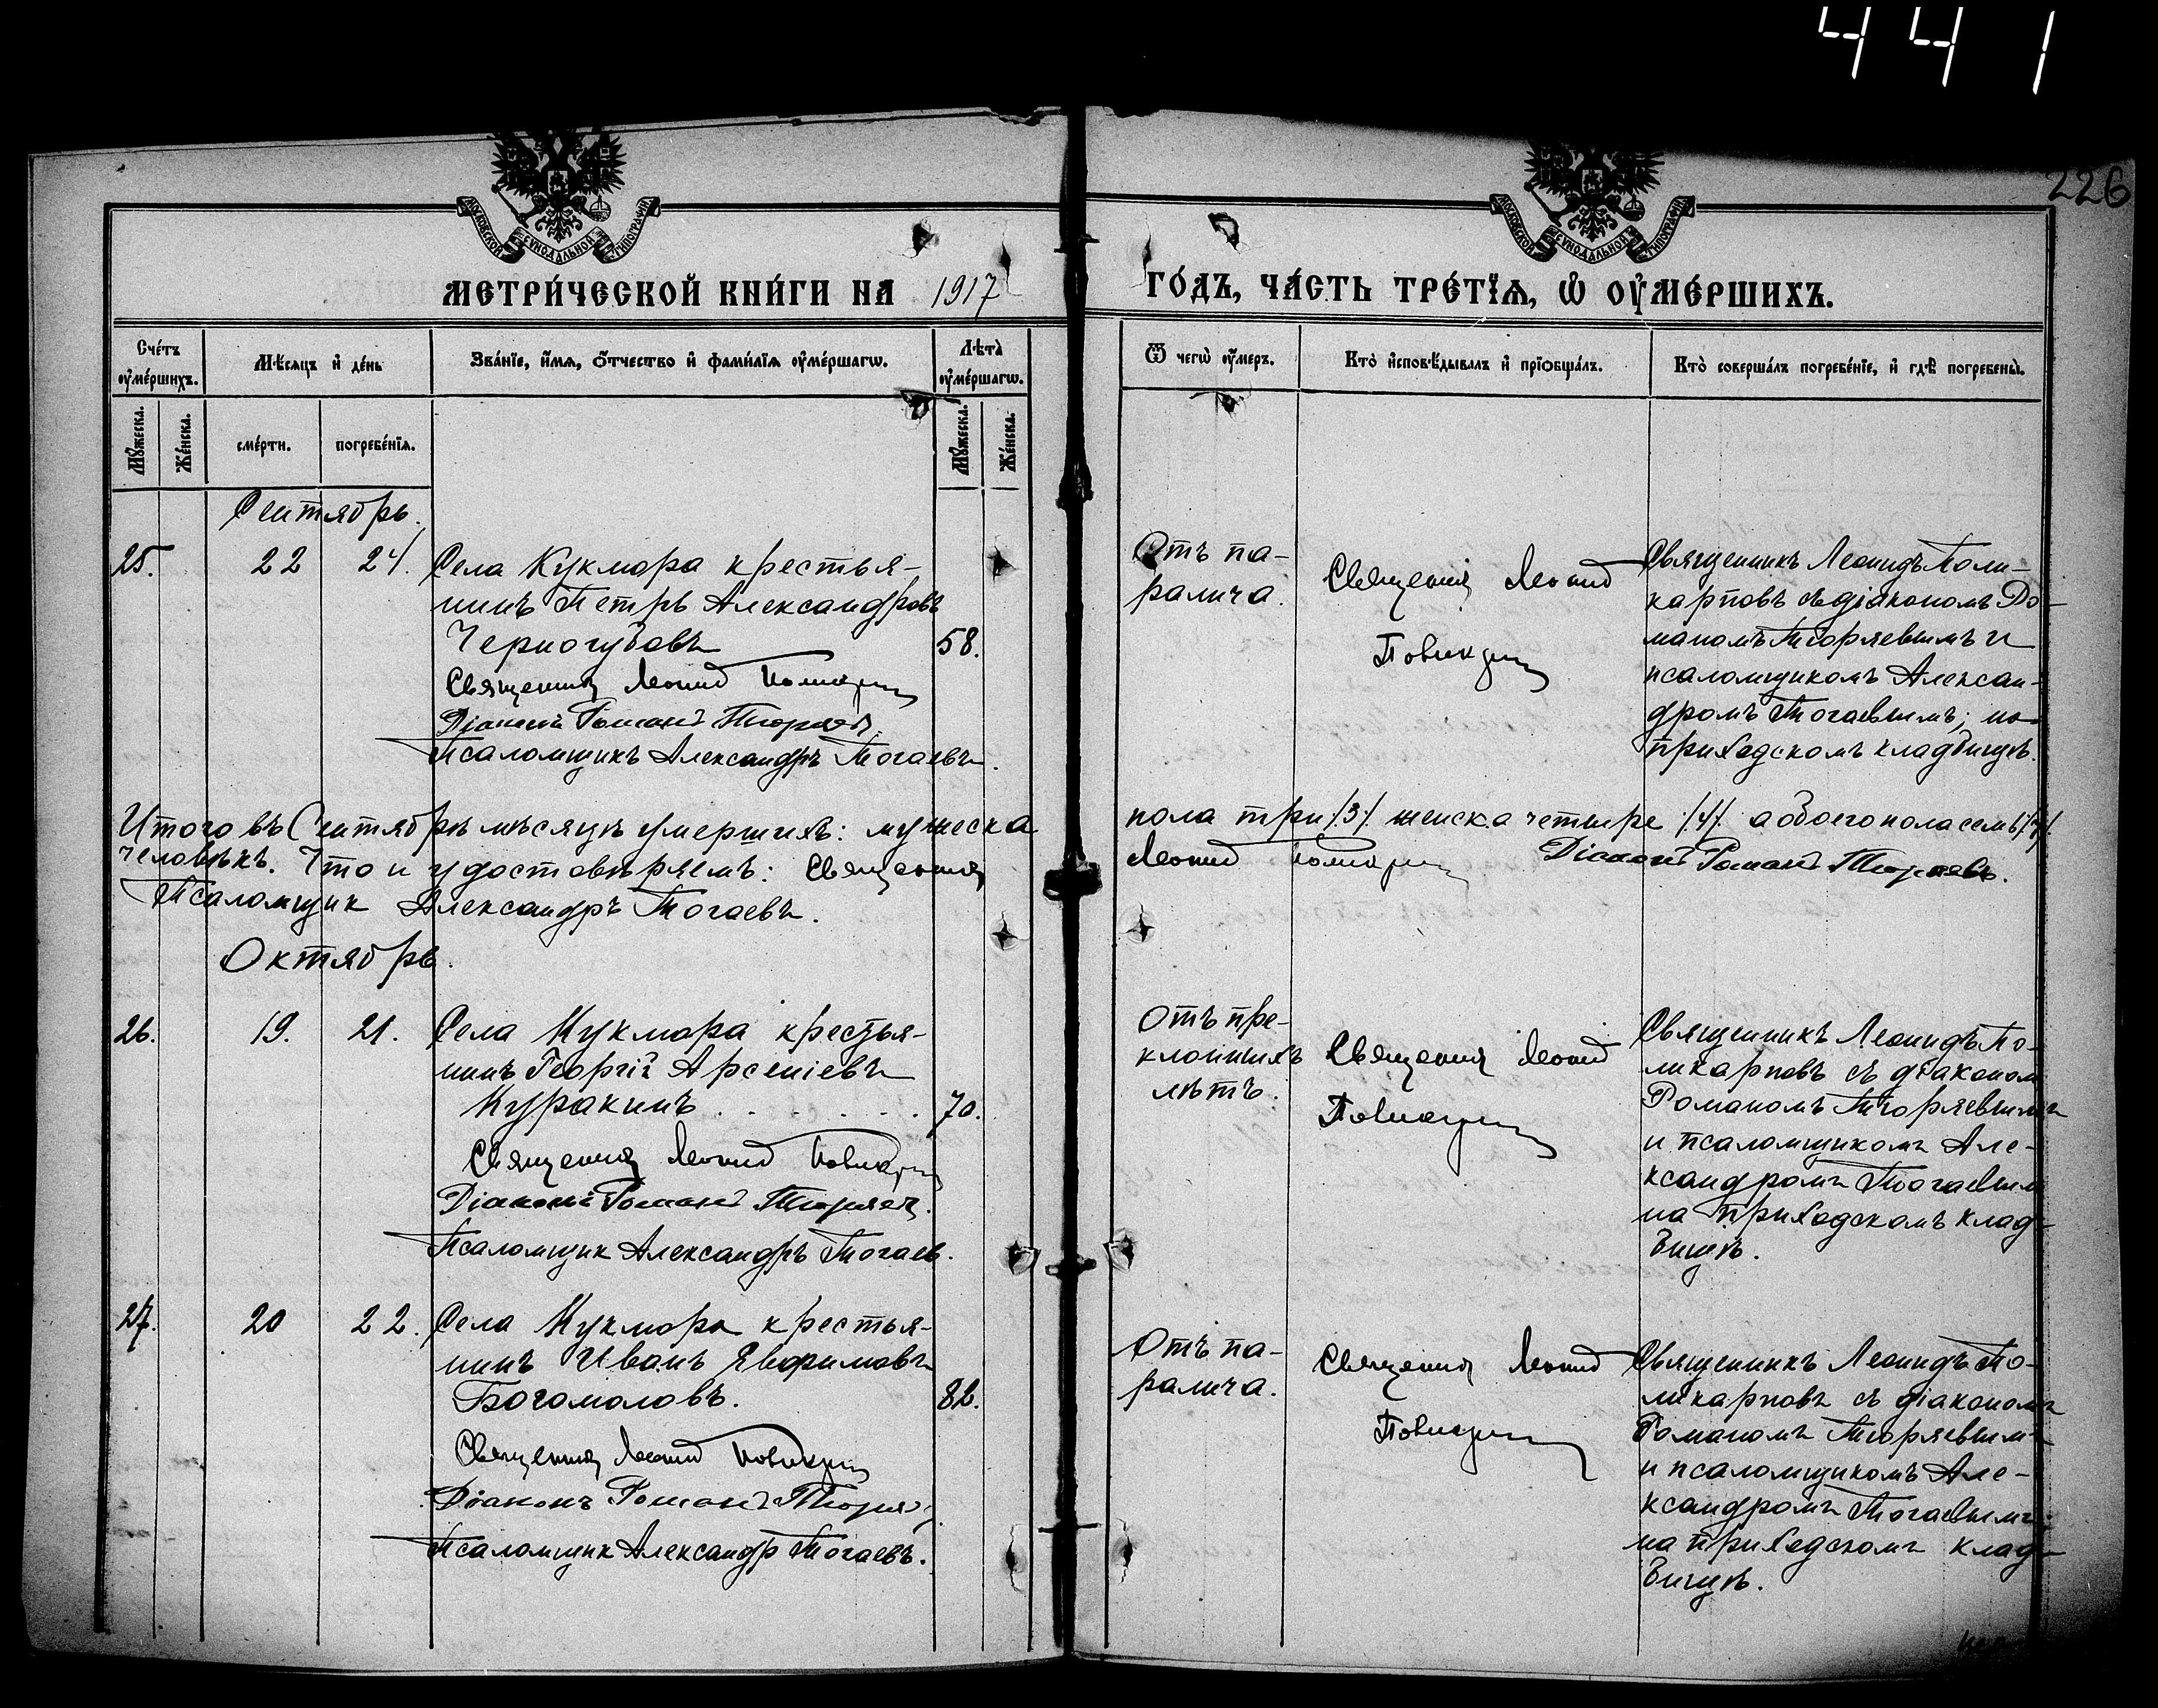 441
226
МОСКОВСКОЙ СѴНОДАЛЬНОЙ ТИПОГРАФІИ
МОСКОВСКОЙ СѴНОДАЛЬНОЙ ТИПОГРАФІИ
МЕТРИ́ЧЕСКОЙ КНИ́ГИ НА 1917
ГО́ДЪ, ЧА́СТЬ ТРЕ́ТЇѦ, Ѡ҆ ОУ҆МЕ́РШИХЪ.
Сче́тъ оу҆ме́ршихъ.
Мѣ́сяцъ и҆ де́нь
Зва́нїе, и҆́мѧ, ѻ҆́тчество и҆ фами́лїѧ оу҆ме́ршагѡ.
Лѣ́та̀ оу҆ме́ршагѡ.
Ѿ чегѡ̀ оу҆́меръ.
Кто̀ и҆сповѣ́дывалъ и҆ прїѻбща́лъ.
Кто̀ соверша́лъ погребе́нїе, и҆ гдѣ̀ погребены̀.
Му́жеска.
Же́нска.
сме́рти.
погребе́нїѧ.
Му́жеска.
Же́нска.
Сентябрь.
25. 22 24. Села Кукмора крестья-
нинъ Петръ Александровъ
Черногубовъ 58.
Священникъ Леонид Поликарпов
Діаконъ Романъ Тюряевъ
Псаломщикъ Александръ Тогаевъ.
Отъ па-
ралича.
Священникъ Леонид
Поликарпов
Священникъ Леонидъ Поли-
карповъ съ діакономъ Ро-
маномъ Тюряевымъ и
псаломщикомъ Алексан-
дромъ Тогаевымъ; на
приходскомъ кладбищѣ.
Итого въ Сентябрѣ мѣсяцѣ умершихъ: мужеска
пола три /3/. женска четыре /4/. а обоего пола семь /7/.
человѣкъ. Что и удостовѣряемъ: Священникъ
Леонид Поликарпов Діаконъ Романъ Тюряевъ.
Псаломщик Александръ Тогаевъ.
Октябрь.
26. 19. 21. Села Кукмора крестья-
нинъ Георгій Арсеніевъ
Куракинъ . . . . . . 70.
Священникъ Леонид Поликарпов
Діаконъ Романъ Тюряевъ.
Псаломщик Александръ Тогаев.
Отъ пре-
клонныхъ
лѣтъ.
Священникъ Леонид
Поликарпов
Священникъ Леонидъ По-
ликарповъ съ діаконом
Романомъ Тюряевымъ
и псаломщикомъ Але-
ксандромъ Тогаевым
на приходскомъ клад-
бищѣ.
27. 20 22. Села Кукмора крестья-
нинъ Иванъ Евфимовъ
Богомоловъ. 82.
Священникъ Леонид Поликарпов
Діаконъ Романъ Тюряев
Псаломщик Александр Тогаевъ.
Отъ па-
ралича.
Священникъ Леонид
Поликарпов
Священникъ Леонидъ По-
ликарповъ съ діакономъ
Романомъ Тюряевым
и псаломщикомъ Але-
ксандромъ Тогаевымъ;
на приходскомъ клад-
бищѣ.